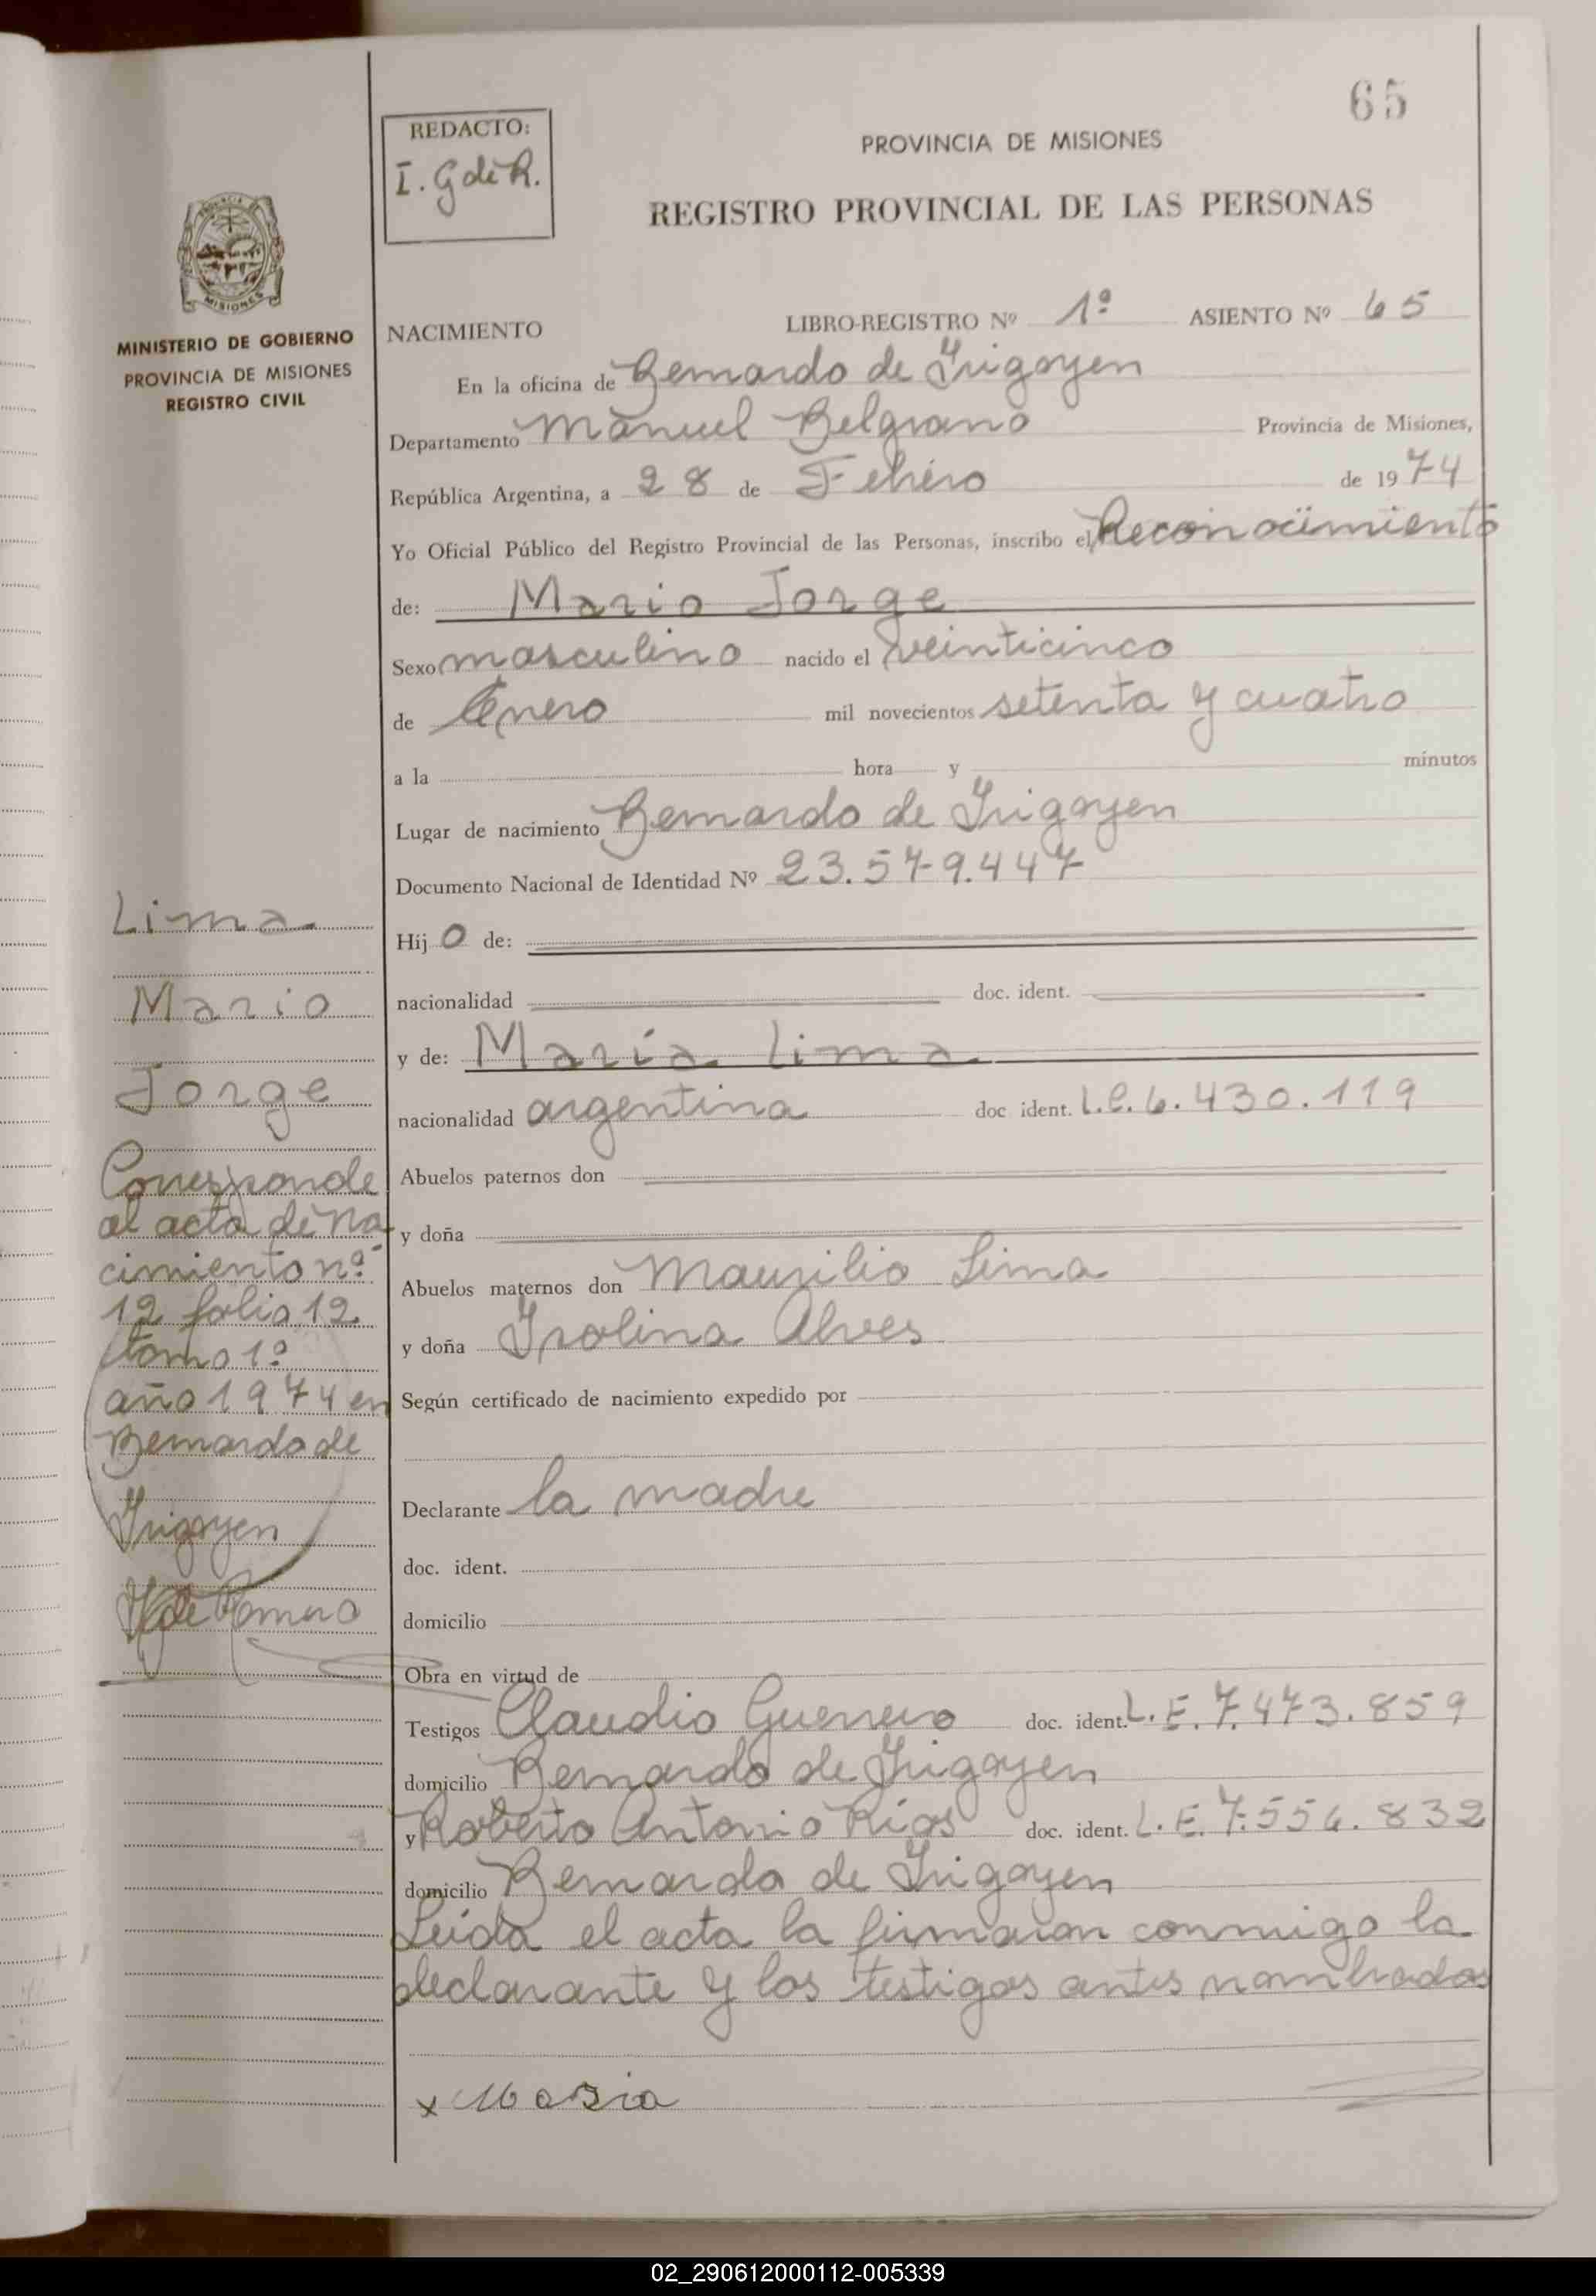 65
REDACTO:
I. G de R.
PROVINCIA DE MISIONES
REGISTRO PROVINCIAL DE LAS PERSONAS
MISIONES
MINISTERIO DE GOBIERNO
PROVINCIA DE MISIONES
REGISTRO CIVIL
NACIMIENTO LIBRO-REGISTRO Nº 1º ASIENTO Nº 65
En la oficina de Bernardo de Irigoyen
Departamento Manuel Belgrano Provincia de Misiones,
República Argentina, a 28 de Febrero de 1974
Yo Oficial Público del Registro Provincial de las Personas, inscribo el Reconocimiento
de: Mario Jorge
Sexo masculino nacido el veinticinco
de Enero mil novecientos setenta y cuatro
a la hora y minutos
Lugar de nacimiento Bernardo de Irigoyen
Documento Nacional de Identidad Nº 23.579.447
Hijo de:
nacionalidad doc. ident.
y de: María Lima
nacionalidad argentina doc ident. L.C. 6.430.119
Abuelos paternos don
y doña
Abuelos maternos don Maurilio Lima
y doña Isolina Alves
Según certificado de nacimiento expedido por
Declarante la madre
doc. ident.
domicilio
Obra en virtud de
Testigos Claudio Guerrero doc. ident. L.E. 7.473.859
domicilio Bernardo de Irigoyen
y Roberto Antonio Ríos doc. ident. L.E. 7.556.832
domicilio Bernardo de Irigoyen
Leída el acta la firmaron conmigo la
declarante y los testigos antes nombrados
x Maria
Lima
Mario
Jorge
Corresponde
al acta de na
cimiento nº
12 folio 12
tomo 1º
año 1974 en
Bernardo de
Irigoyen
de Romero
02_290612000112-005339